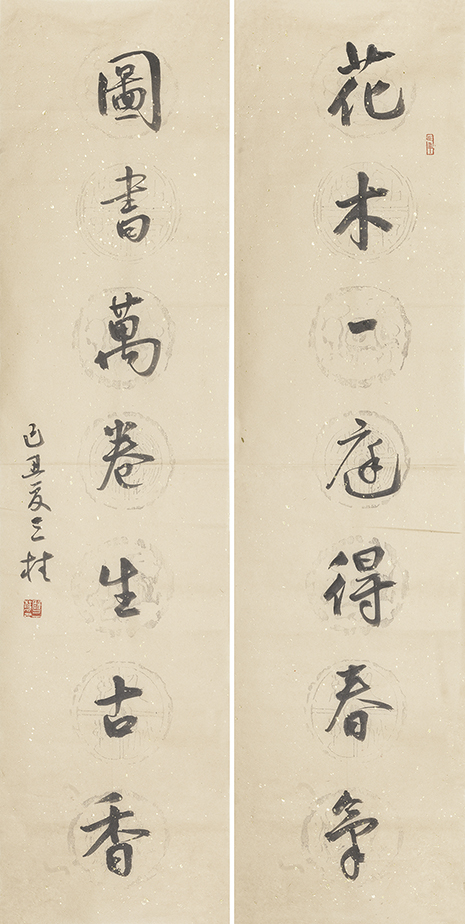 花木一庭得春氣
圖書萬卷生古香
己丑夏立桂